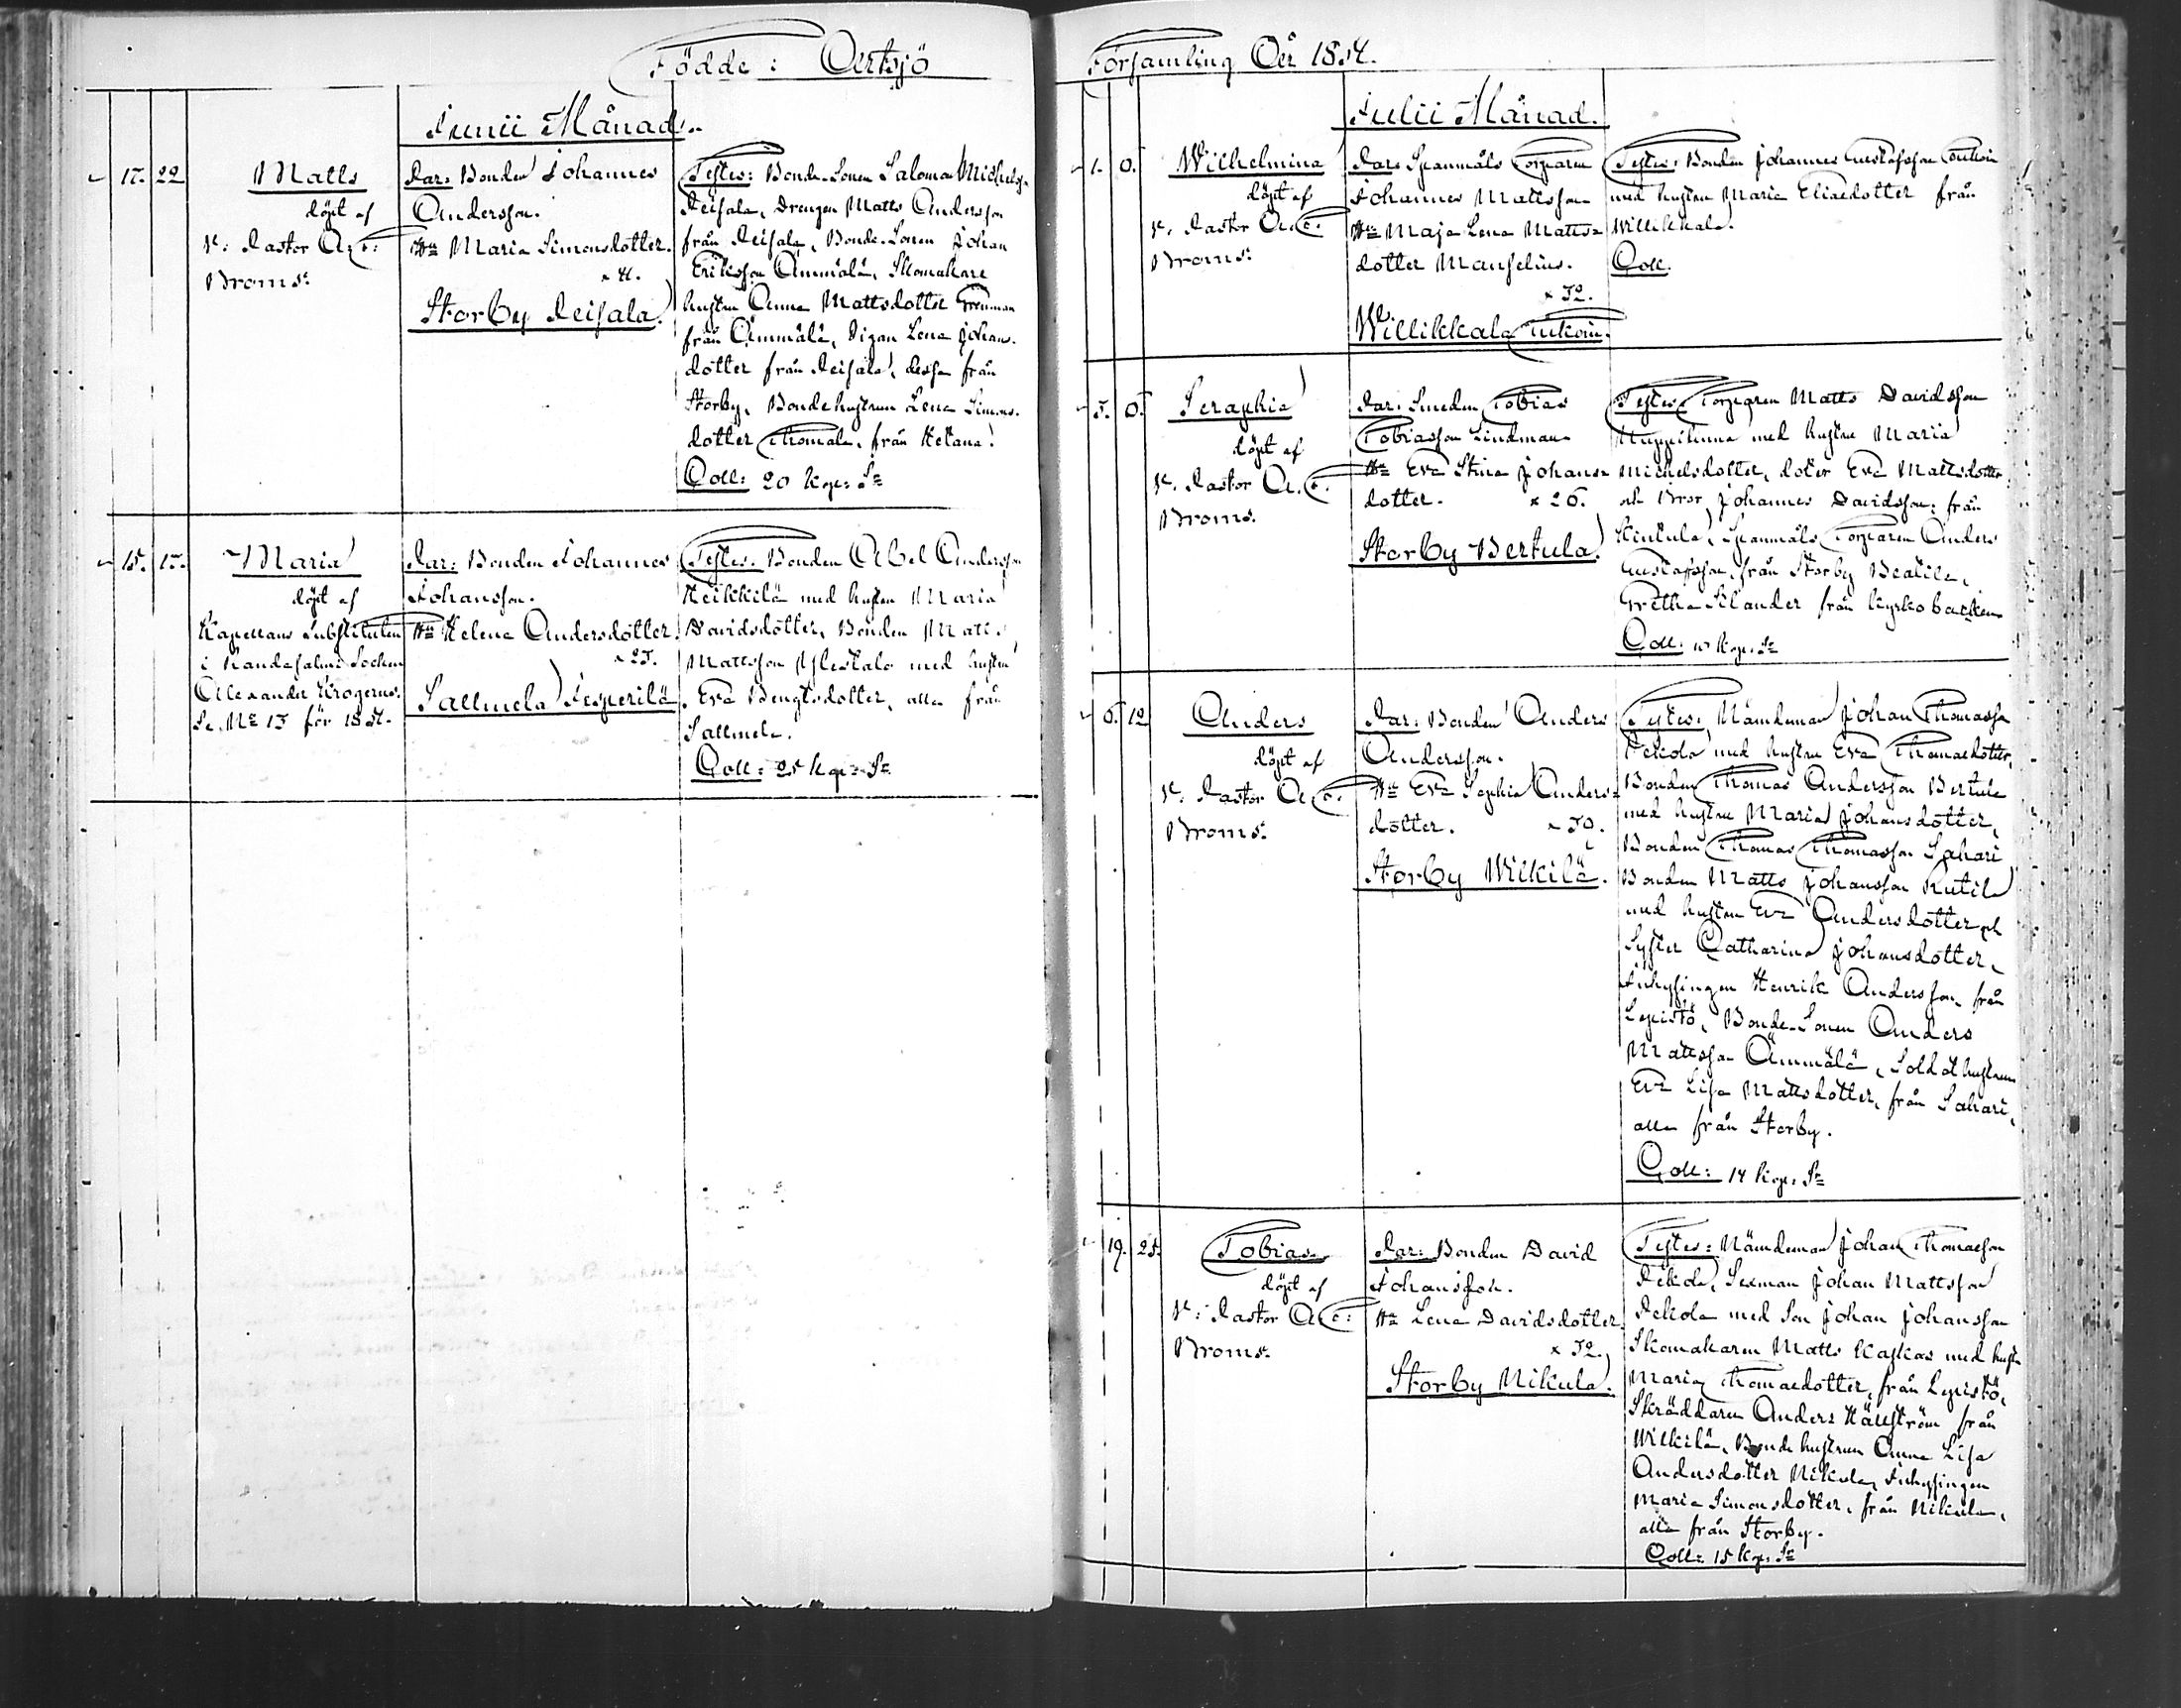 Födde: Oertsjö
Junii Månad.
17. 22
Matts
döpt af
v: Pastor A. E:
Broms:
Par: Bonden Johannes
Andersson.
Hu Maria Simonsdotter.
Storby Reisala.
Testes: Bonde-Sonen Salomon Michels-
Reisala, Drengen Matts Andersson
från Reisala, Bonde-Sonen Johan
Eriksson Ämmälä, Skomakare
hustru Anna Mattsdotter
från Ämmälä, Pigan Lena Johans-
dotter från Reisala, dessa från
Storby, Bondehustrun Lena Simons-
dotter Thomala, från Ketana.
Coll: 20 kop: Sr
15. 17.
Maria
döpt af
Kapellans Substituten
i Randasalmi Socken
Alexander Krogerus.
Se. No 13 för 1854.
Par: Bonden Johannes
Johansson.
Hu Helena Andersdotter.
Sallmela Jesperilä
Testes: Bonden Abel Andersson
Heikkilä med hustru Maria
Davidsdotter, Bonden Matts
Mattsson Ylestalo med hustru
Eva Bengtsdotter, alla från
Sallmela.
Coll: 25 kop: Sr
Församling År 1854.
Julii Månad.
1.
Wilhelmina
döpt af
v. Pastor A. E.
Broms:
Par: Spannmåls Torparen
Johannes Mattsson
Hu Maja Lena Matts-
dotter Manselius.
x 32.
Willikkala
Testes: Bonden Johannes Gustafsson
med hustru Maria Eliaedotter från
Willikkala.
Coll.
5.
Seraphia
döpt af
v. Pastor A. E.
Broms.
Par: Smeden Tobias
Tobiasson Lindman
Hu Eva Stina Johans-
dotter. x 26.
Storby Bertula.
Testes: Torparen Matts Davidsson
med hustru Maria
Michelsdotter, doter Eva Mattsdotter
och Bror Johannes Davidsson, från
Kintula, Spannmåls Torparen Anders
Gustafsson, från Storby
Gretha Klander från Kyrkobacken
Coll: 10 kop: Sr
6. 12
Anders
döpt af
v: Pastor A. E.
Broms:
Par: Bonden Anders
Andersson.
Hu Eva Sophia Anders-
dotter. x 30.
Storby Wilkilä.
Testes: Nämdeman Johan Thomasson
Pekola med hustru Eva Thomaedotter,
Bonden Thomas Andersson Bertula
med hustru Maria Johansdotter,
Bonden Thomas Thomasson Sahari
Bonden Matts Johansson Rutila
med hustru Eva Andersdotter och
Syster Catharina Johansdotter,
Inhysingen Henrik Andersson, från
Lepistö, Bonde-Sonen Anders
Mattsson Ämmälä, Soldathustrun
Eva Lisa Mattsdotter, från Sahari,
alla från Storby.
Coll: 14 kop: Sr
19. 25.
Tobias
döpt af
v: Pastor A. E:
Broms:
Par: Bonden David
Johansson.
Hu Lena Davidsdotter.
x 32.
Storby Nikula.
Testes: Nämdeman Johan Thomasson
Pekola, Sexman Johan Mattsson
Pekola med Son Johan Johansson
Skomakaren Matts Kaskas med hustru
Maria Thomaedotter, från Lepistö,
Skräddaren Anders Hällström från
Wilkilä, Bonde hustrun Anna Lisa
Andersdotter Nikula, Inhysingen
Maria Simonsdotter, från Nikula,
alla från Storby.
Coll: 15 kop: Sr